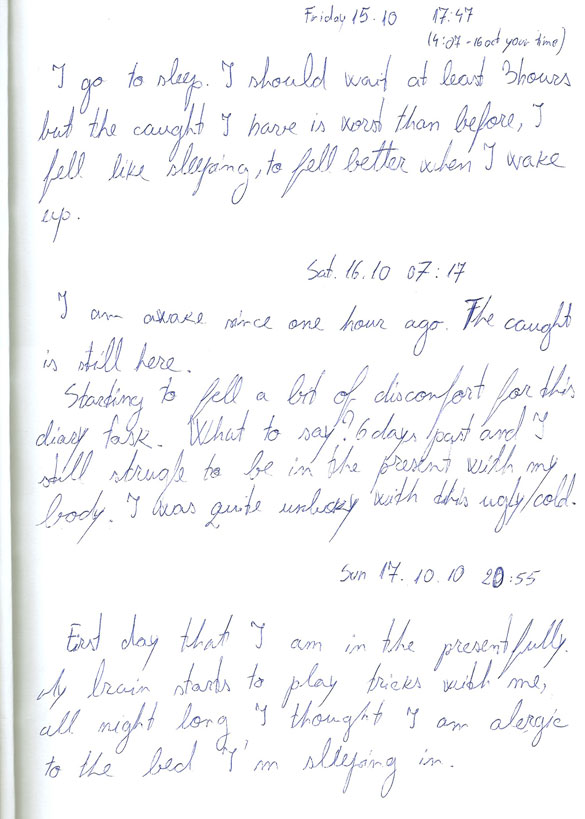 Friday 15.10 17:47
(4:07 - 16 oct your time)
I go to sleep. I should wait at least 3 hours
but the caught I have is worst than before, I
fell like sleeping, to fell better when I wake
up.
Sat. 16.10 07:17
I am awake since one hour ago. The caught
is still here.
Starting to fell a bit of disconfort for this
diary task. What to say? 6 days past and I
still strugle to be in the present with my
body. I was quite unlucky with this ugly cold.
Sun 17.10.10 20:55
First day that I am in the present fully.
My brain starts to play tricks with me,
all night long I thought I am alergic
to the bed I'm slleping in.